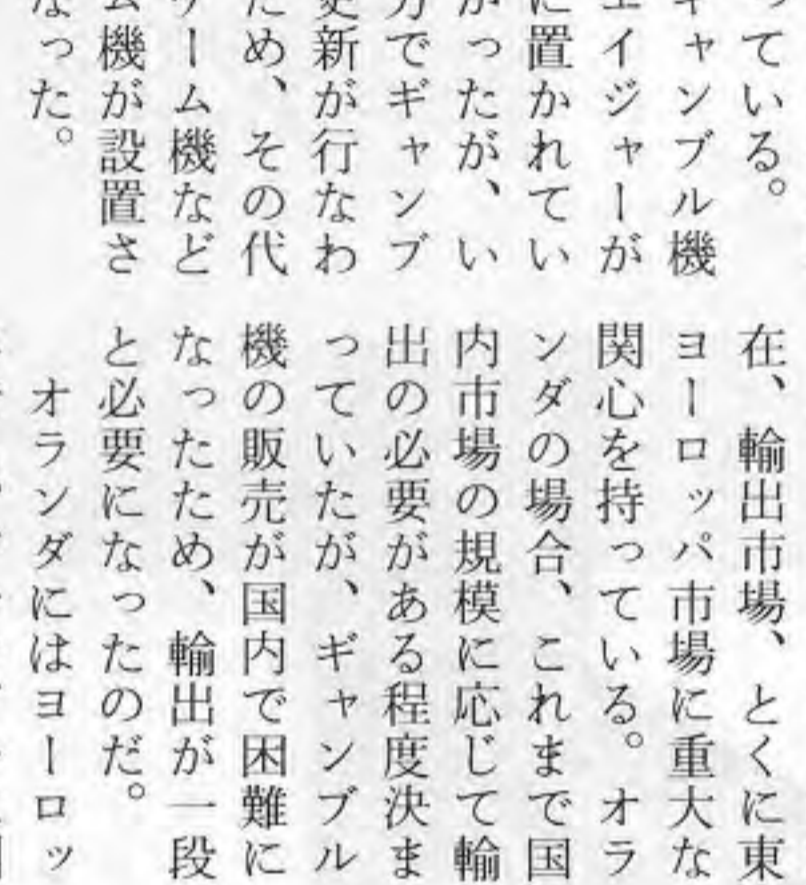 っている。
ギャンブル機
エイジャーが
に置かれてい
かったが、い
力でギャンブ
更新が行なわ
ため、その代
ゲーム機など
ム機が設置さ
なった。
在、輸出市場、とくに東
ヨーロッパ市場に重大な
関心を持っている。オラ
ンダの場合、これまで国
内市場の規模に応じて輸
出の必要がある程度決ま
っていたが、ギャンブル
機の販売が国内で困難に
なったため、輸出が一段
と必要になったのだ。
オランダにはヨーロッ